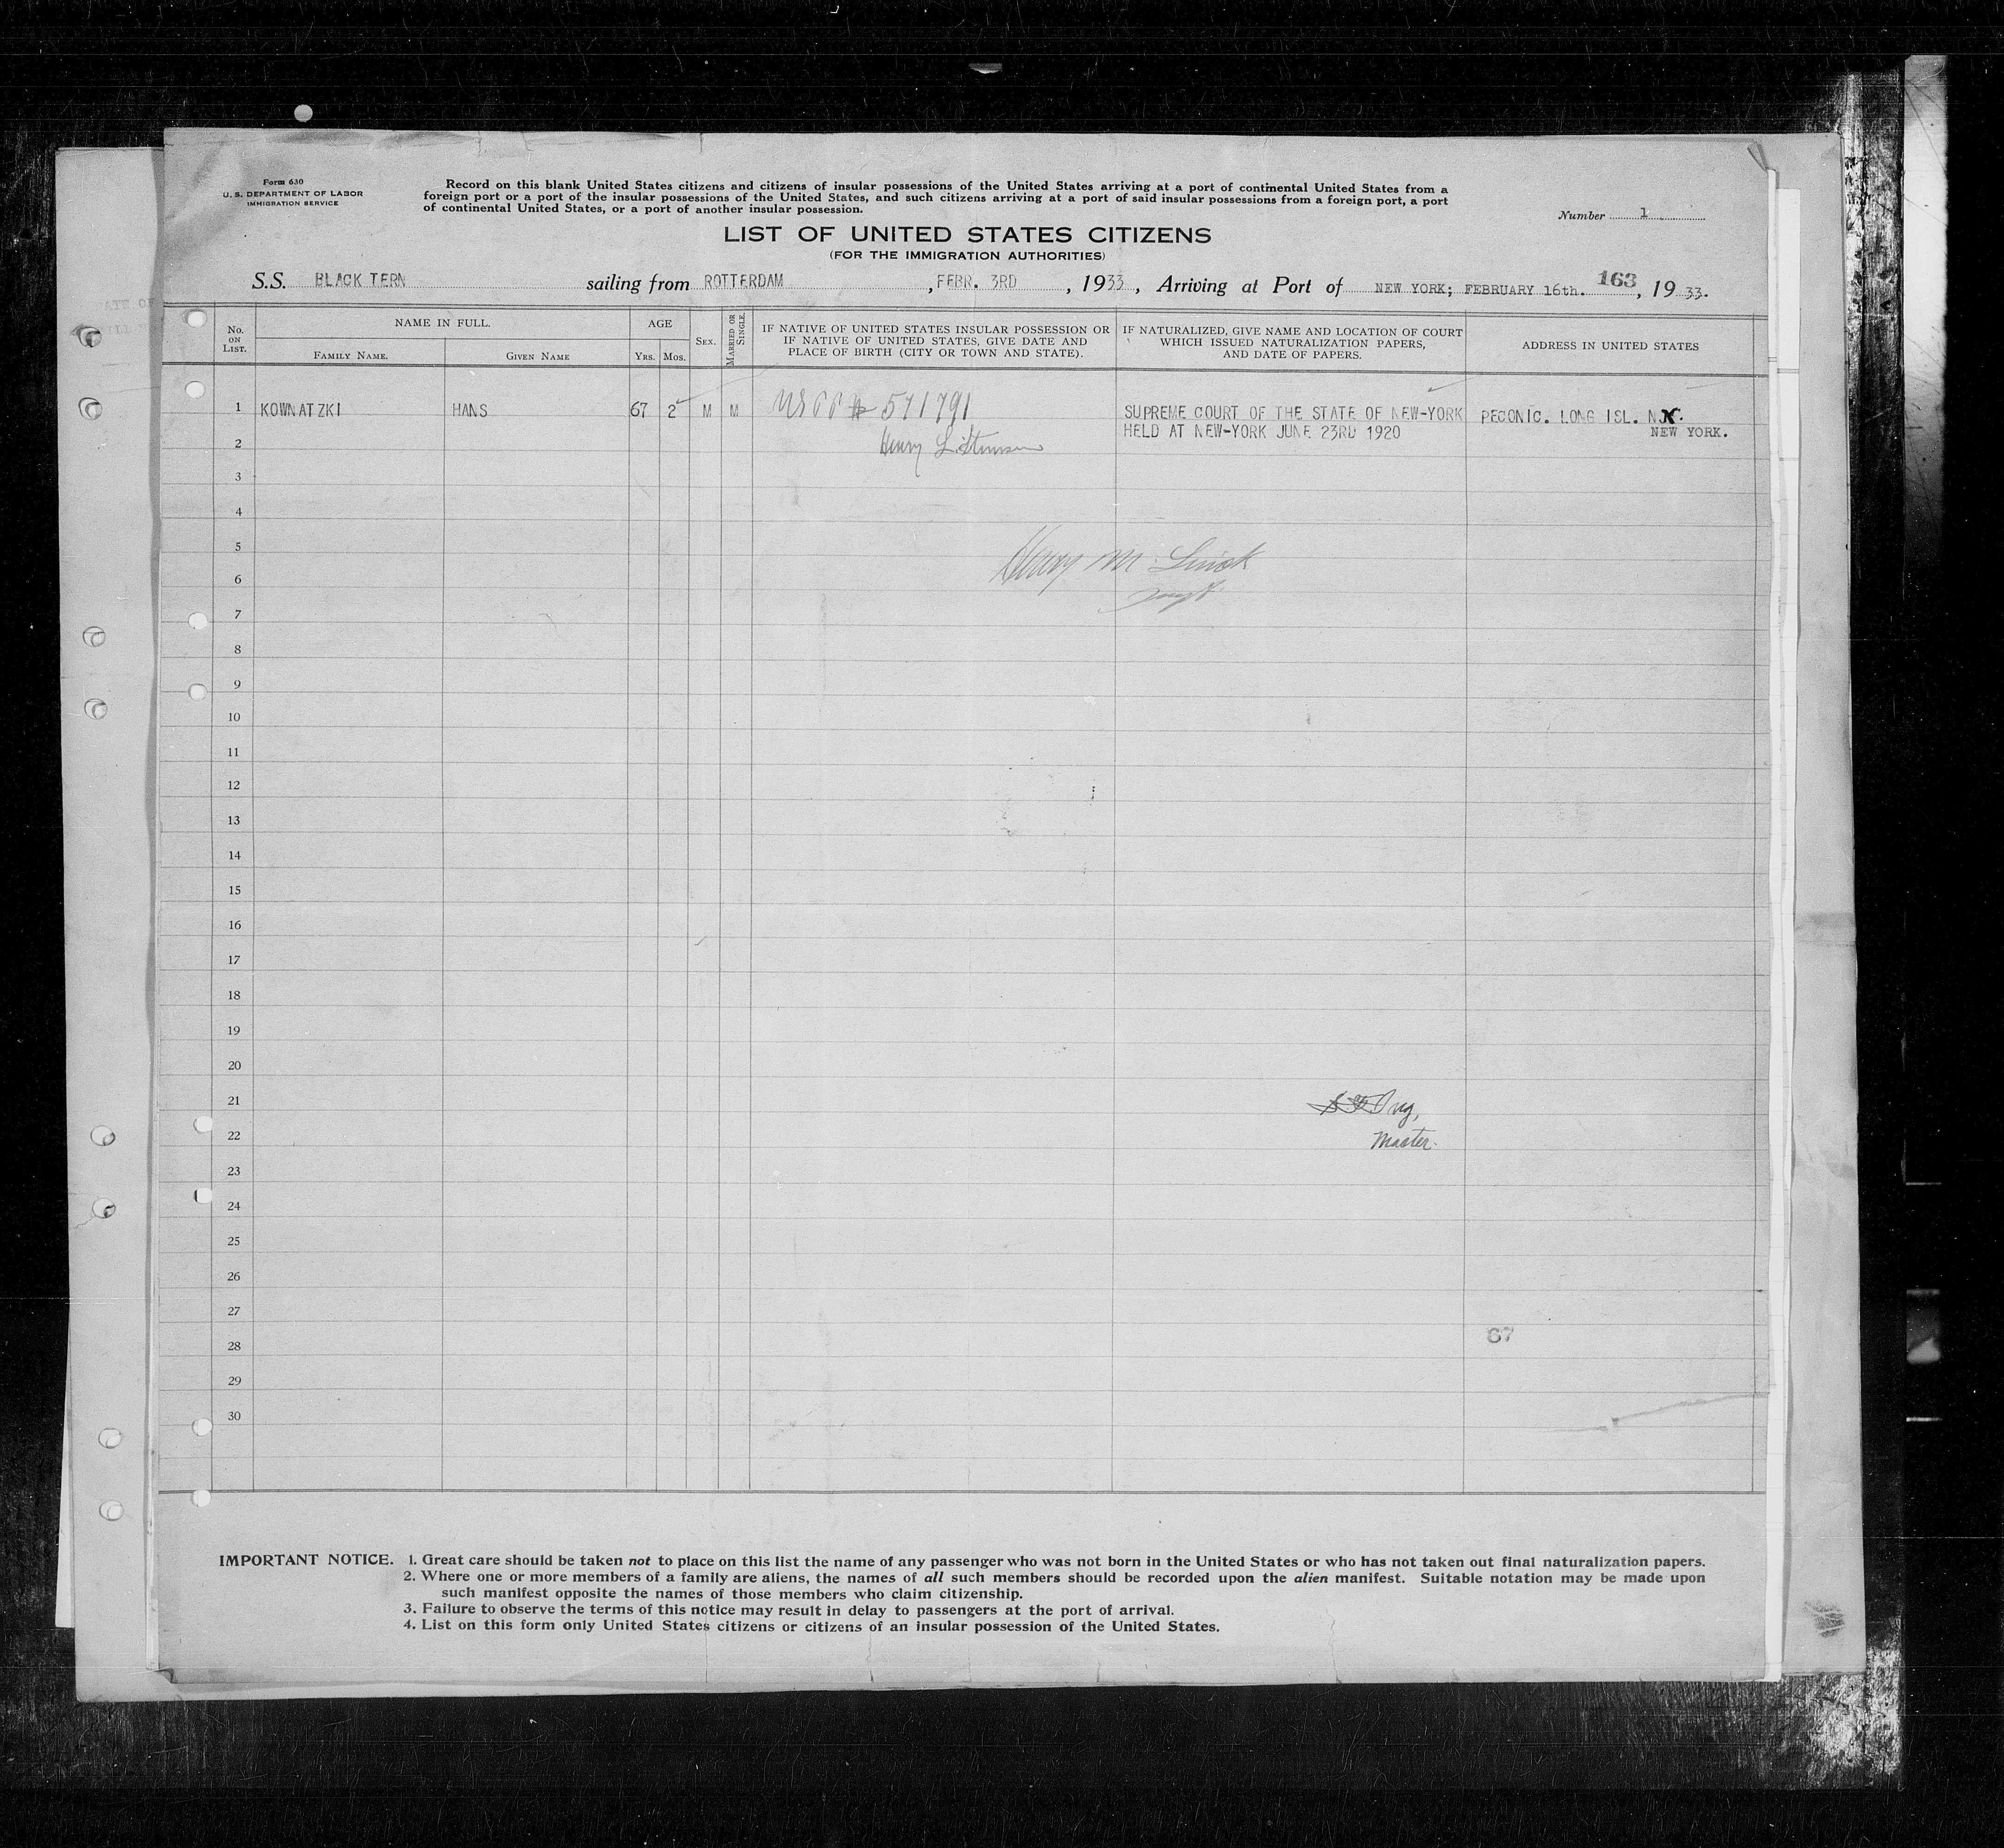 Form 630
U. S. DEPARTMENT OF LABOR
IMMIGRATION SERVICE
Record on this blank United States citizens and citizens of insular possessions of the United States arriving at a port of continental United States from a
foreign port or a port of the insular possessions of the United States, and such citizens arriving at a port of said insular possessions from a foreign port, a port
of continental United States, or a port of another insular possession.
Number 1
LIST OF UNITED STATES CITIZENS
(FOR THE IMMIGRATION AUTHORITIES)
S.S. BLACK TERN sailing from ROTTERDAM , FEBR. 3RD , 1933 , Arriving at Port of NEW YORK; FEBRUARY 16th. 163 , 1933.
No. ON LIST.
NAME IN FULL.
FAMILY NAME. GIVEN NAME
AGE
YRS. MOS.
SEX.
MARRIED OR SINGLE.
IF NATIVE OF UNITED STATES INSULAR POSSESSION OR
IF NATIVE OF UNITED STATES, GIVE DATE AND
PLACE OF BIRTH (CITY OR TOWN AND STATE).
IF NATURALIZED, GIVE NAME AND LOCATION OF COURT
WHICH ISSUED NATURALIZATION PAPERS,
AND DATE OF PAPERS.
ADDRESS IN UNITED STATES
1 KOWNATZKI HANS 67 2 M M USPP # 571791 SUPREME COURT OF THE STATE OF NEW-YORK PECONIC. LONG ISL. N.
2 Henry L. Stimson HELD AT NEW-YORK JUNE 23RD 1920 NEW YORK.
3
4
5 Henry M.
6
7
8
9
10
11
12
13
14
15
16
17
18
19
20
21
22 Master.
23
24
25
26
27
28 67
29
30
IMPORTANT NOTICE. 1. Great care should be taken not to place on this list the name of any passenger who was not born in the United States or who has not taken out final naturalization papers.
2. Where one or more members of a family are aliens, the names of all such members should be recorded upon the alien manifest. Suitable notation may be made upon
such manifest opposite the names of those members who claim citizenship.
3. Failure to observe the terms of this notice may result in delay to passengers at the port of arrival.
4. List on this form only United States citizens or citizens of an insular possession of the United States.